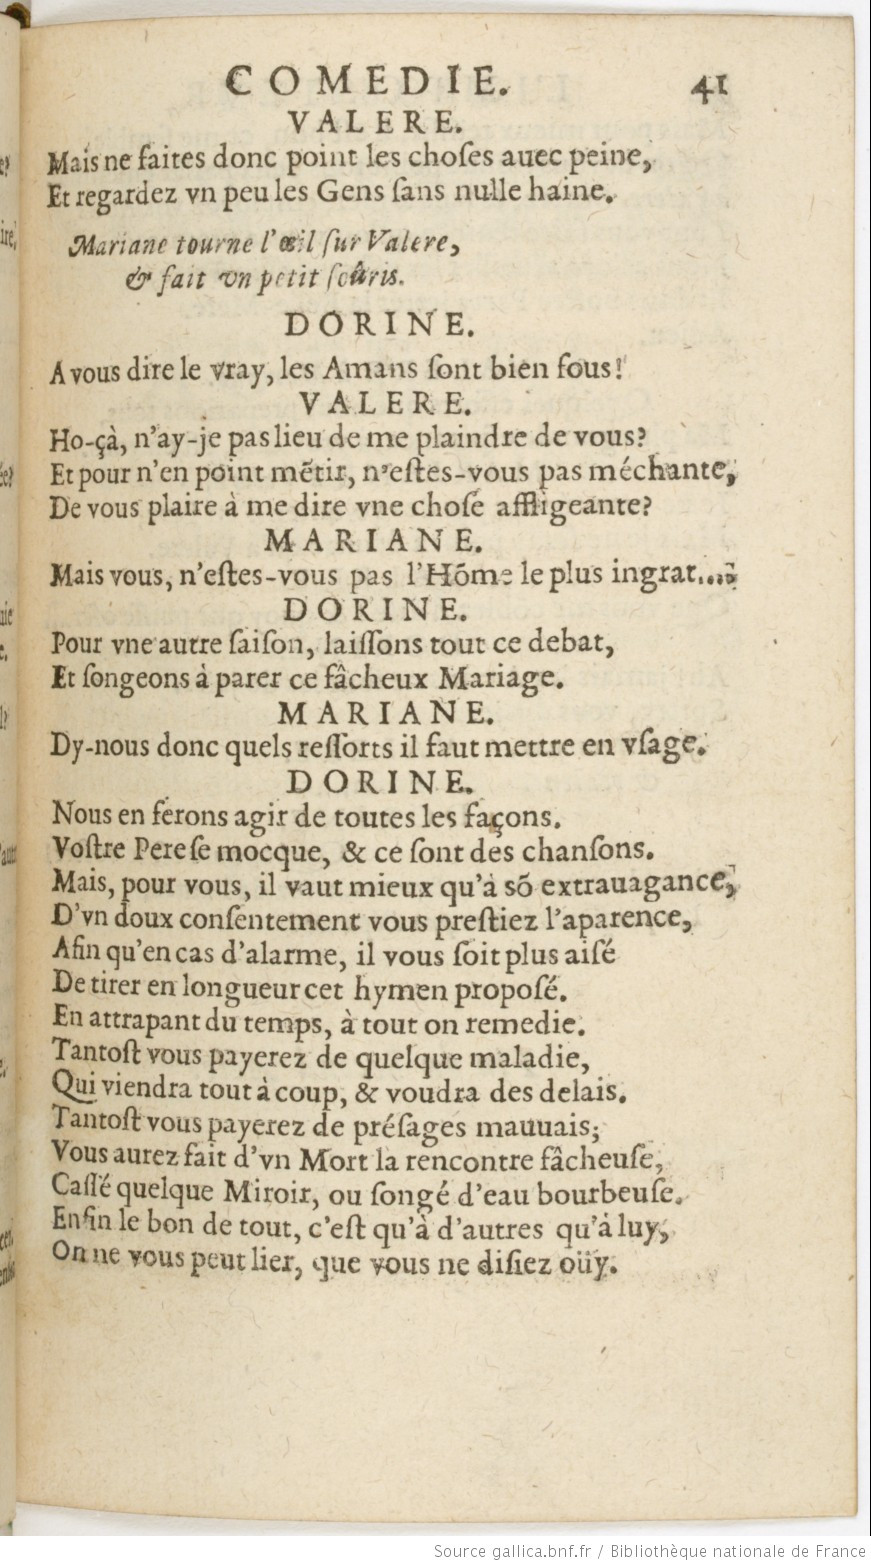 COMEDIE. 41
VALERE.
Mais ne faites donc point les choſes auec peine,
Et regardez vn peu les Gens ſans nulle haine.
Mariane tourne l'œil ſur Valere,
& fait vn petit ſoûris.
DORINE.
A vous dire le vray, les Amans ſont bien fous!
VALERE.
Ho-çà, n'ay-je pas lieu de me plaindre de vous?
Et pour n'en point mẽtir, n'eſtes-vous pas méchante,
De vous plaire à me dire vne choſe affligeante?
MARIANE.
Mais vous, n'eſtes-vous pas l'Hõme le plus ingrat...?
DORINE.
Pour vne autre ſaiſon, laiſſons tout ce debat,
Et ſongeons à parer ce fâcheux Mariage.
MARIANE.
Dy-nous donc quels reſſorts il faut mettre en vſage.
DORINE.
Nous en ferons agir de toutes les façons.
Voſtre Pere ſe mocque, & ce ſont des chanſons.
Mais, pour vous, il vaut mieux qu'à ſõ extrauagance,
D'vn doux conſentement vous preſtiez l'aparence,
Afin qu'en cas d'alarme, il vous ſoit plus aiſé
De tirer en longueur cet hymen propoſé.
En attrapant du temps, à tout on remedie.
Tantoſt vous payerez de quelque maladie,
Qui viendra tout à coup, & voudra des delais.
Tantoſt vous payerez de préſages mauuais;
Vous aurez fait d'vn Mort la rencontre fâcheuſe,
Caſſé quelque Miroir, ou ſongé d'eau bourbeuſe.
Enfin le bon de tout, c'eſt qu'à d'autres qu'à luy,
On ne vous peut lier, que vous ne diſiez oüy.
Source gallica.bnf.fr / Bibliothèque nationale de France